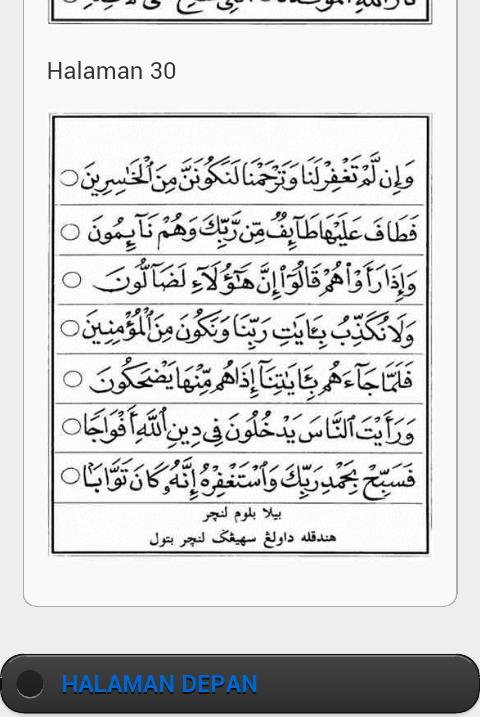 Halaman 30
وَإِن لَّمْ تَغْفِرْ لَنَا وَتَرْحَمْنَا لَنَكُونَنَّ مِنَ ٱلْخَٰسِرِينَ
فَطَافَ عَلَيْهَا طَآئِفٌ مِّن رَّبِّكَ وَهُمْ نَآئِمُونَ
وَإِذَا رَأَوْهُمْ قَالُوٓا۟ إِنَّ هَٰٓؤُلَآءِ لَضَآلُّونَ
وَلَا نُكَذِّبُ بِـَٔايَٰتِ رَبِّنَا وَنَكُونَ مِنَ ٱلْمُؤْمِنِينَ
فَلَمَّا جَآءَهُم بِـَٔايَٰتِنَآ إِذَا هُم مِّنْهَا يَضْحَكُونَ
وَرَأَيْتَ ٱلنَّاسَ يَدْخُلُونَ فِى دِينِ ٱللَّهِ أَفْوَاجًا
فَسَبِّحْ بِحَمْدِ رَبِّكَ وَٱسْتَغْفِرْهُ إِنَّهُۥ كَانَ تَوَّابًۢا
بيلا بلوم لنچر
هندقله داولڠ سهيڠݢ لنچر بتول
HALAMAN DEPAN